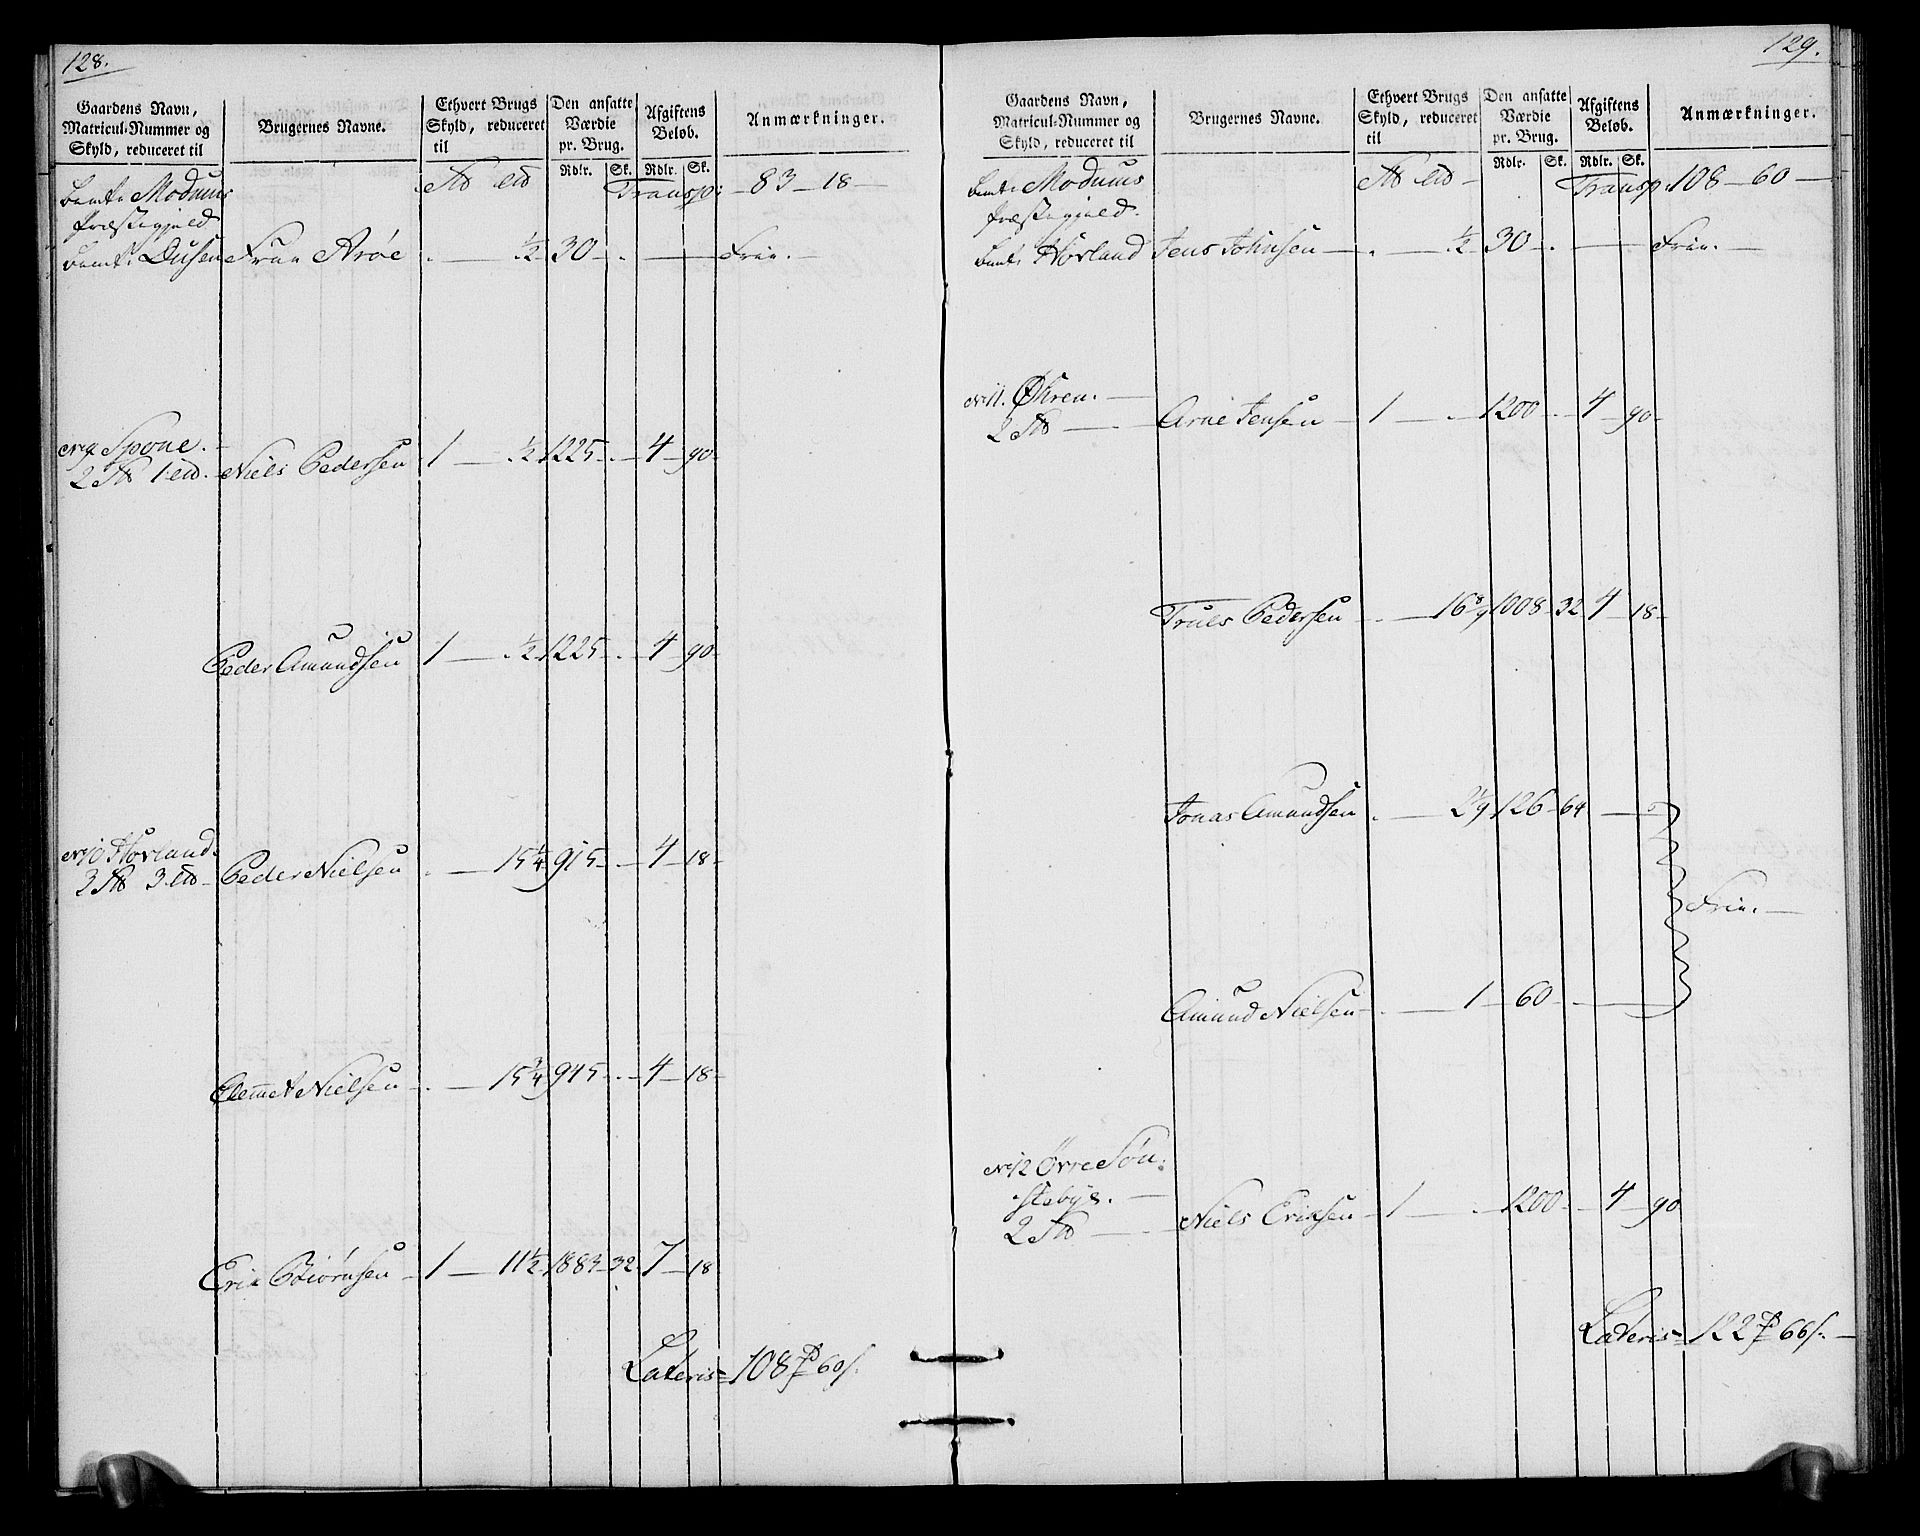 128.
Gaardens Navn, Matricul-Nummer og Skyld, reduceret til
Brugernes Navne.
Ethvert Brugs Skyld, reduceret til
Den ansatte Værdie pr. Brug.
Rdlr. Sk.
Afgiftens Beløb.
Rdlr. Sk.
Anmærkninger.
bemte Modums Transp: 83 - 18 -
Præstegjeld
bemt: Dusen Frue Arøe . — ½ 30 - . — Frie. —
No 9 Spone. -
2 1 Niels Pedersen 1 — . ½ 1225 - . - 4 - 90 -
Peder Amundsen 1 — . ½ 1225 - . - 4 - 90 -
No 10 Hovland.
3 3 - Peder Nielsen . — 15 ¼ 915 - . - 4 - 18 -
Clemmet Nielsen - . — 15 ¾ 945 - . - 4 - 18 -
Erik Biørnsen - 1 — 11 ½ 1883 - 32 - 7 - 18 -
Lateris = 108 60 s.
129.
Gaardens Navn, Matricul-Nummer og Skyld, reduceret til
Brugernes Navne.
Ethvert Brugs Skyld, reduceret til
Den ansatte Værdie pr. Brug.
Rdlr. Sk.
Afgiftens Beløb.
Rdlr. Sk.
Anmærkninger.
bemte Modums Transp: 108 - 60 —
Præstegjeld.
bemt: Hovland Jens Johnsen — . — ½ 30 - . — Frie. —
No 11. Øhren. —
2 — Arne Jensen — 1 — . - 1200 - . - 4 - 90 -
Truls Pedersen - . — 16 8/9 1008 - 32 - 4 - 18 -
Jonas Amundsen . — 2 1/9 126 - 64 -
Frie. —
Amund Nielsen - . — 1 - 60 - . -
No 12 Øvre Søn-
stebye. —
2 — Niels Eriksen - 1 — . - 1200 - . - 4 - 90
Lateris = 122 66 s. —